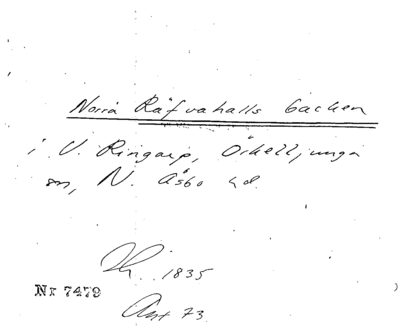 Norra Räfvahalls backen
i V. Ringarp, Örkelljunga
sn, N. Åsbo hd.
1835
Nr 7479
73